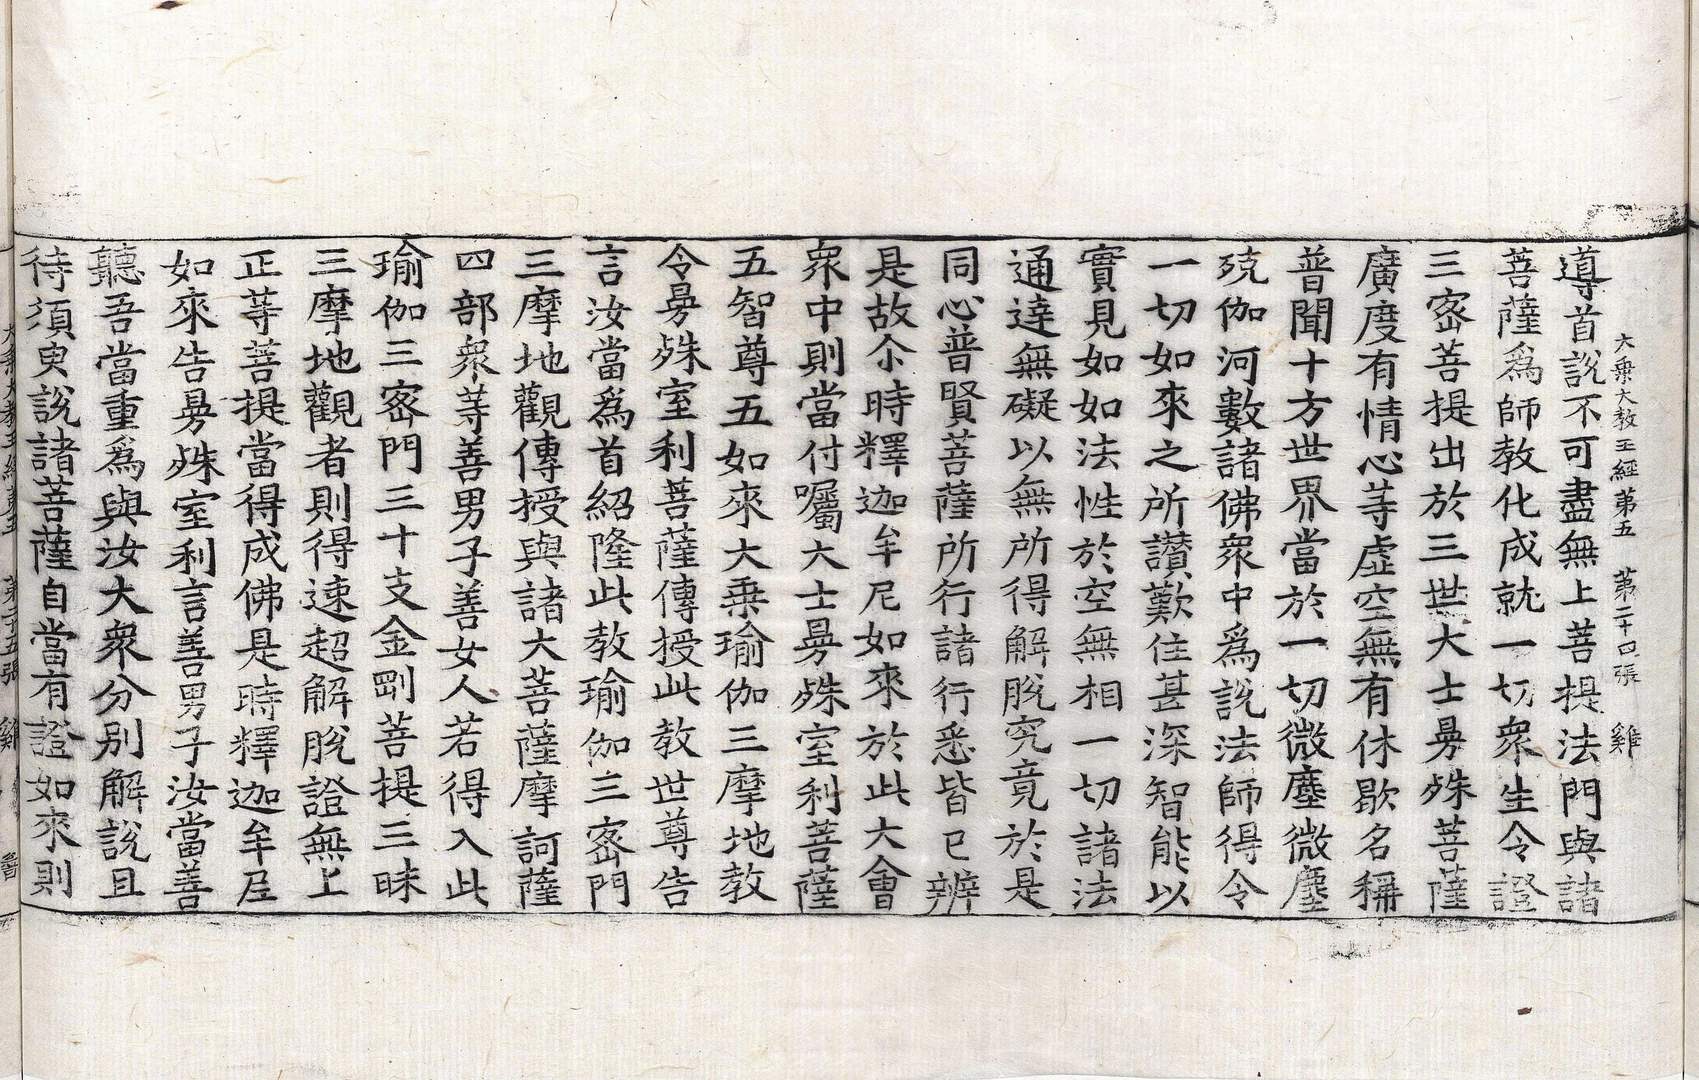 大乘大教王經第五　第二十四張　雞
導首說不可盡無上菩提法門與諸
菩薩爲師教化成就一切衆生令證
三密菩提出於三世大士曼殊菩薩
廣度有情心等虛空無有休歇名稱
普聞十方世界當於一切微塵微塵
殑伽河數諸佛衆中爲說法師得令
一切如來之所讚歎住甚深智能以
實見如如法性於空無相一切諸法
通達無礙以無所得解脫究竟於是
同心普賢菩薩所行諸行悉皆已辨
是故尒時釋迦牟尼如來於此大會
衆中則當付囑大士曼殊室利菩薩
五智尊五如來大乘瑜伽三摩地教
令曼殊室利菩薩傳授此教世尊告
言汝當爲首紹隆此教瑜伽三密門
三摩地觀傳授與諸大菩薩摩訶薩
四部衆等善男子善女人若得入此
瑜伽三密門三十支金剛菩提三昧
三摩地觀者則得速超解脫證無上
正等菩提當得成佛是時釋迦牟尼
如來告曼殊室利言善男子汝當善
聽吾當重爲與汝大衆分別解說且
待須臾說諸菩薩自當有證如來則
大乘大教王經第五　第二十五張　雞